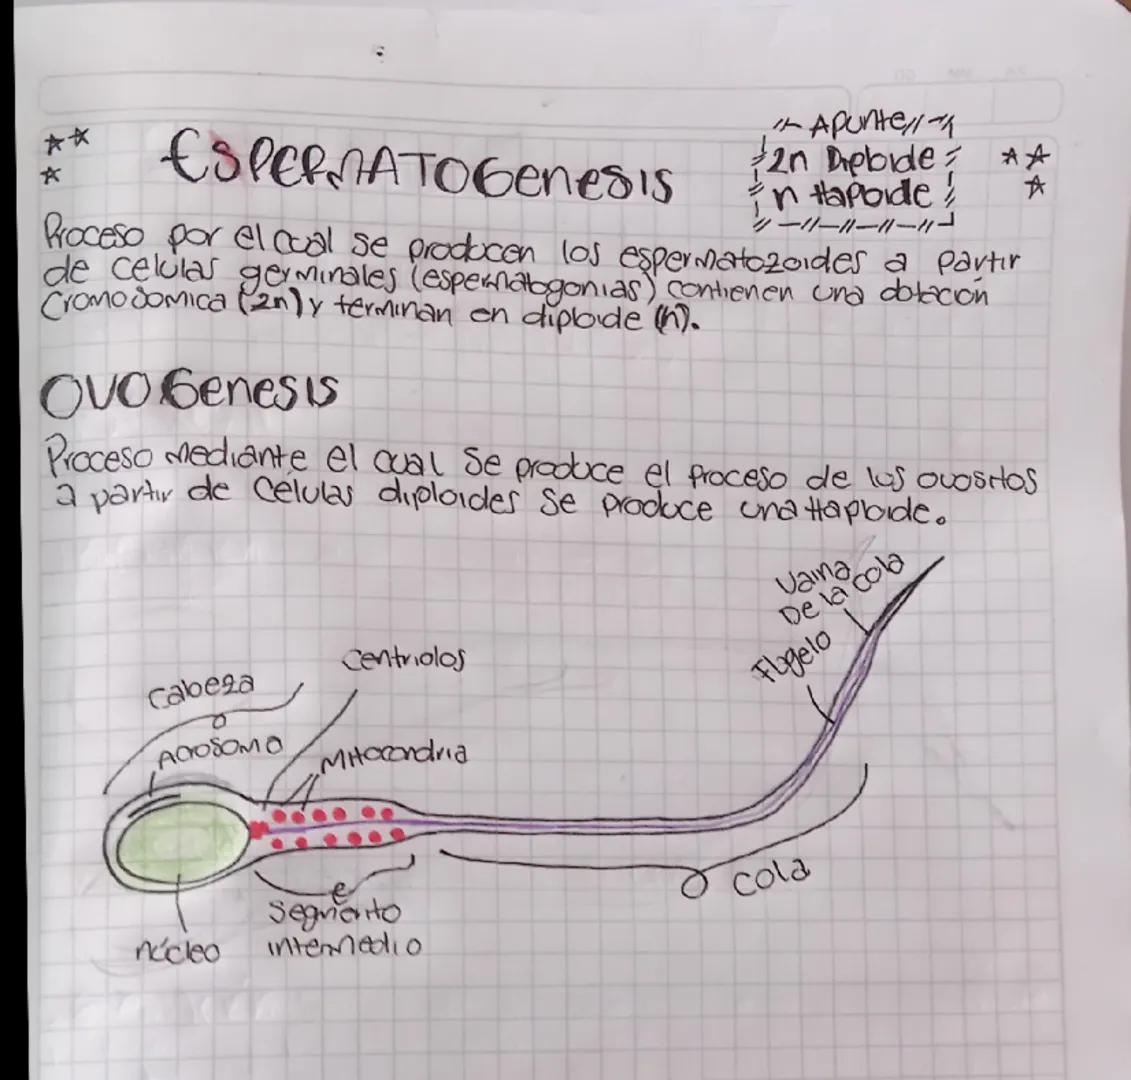 Apunte
ESPERMATOGenesis
2n Diploide
n Haploide
Proceso por el cual se producen los espermatozoides a partir
de celulas germinales (espermatogonias) contienen una dotacion
Cromosomica (2n) y terminan en diploide (n).
OVOGenesis
Proceso Mediante el cual Se produce el proceso de los ovositos
a partir de Células diploides Se produce una Haploide.
Vaina
De la cola
Flagelo
Centriolos
Cabeza
Acrosoma
Mitocondria
Cola
Segmento
intermedio
núcleo